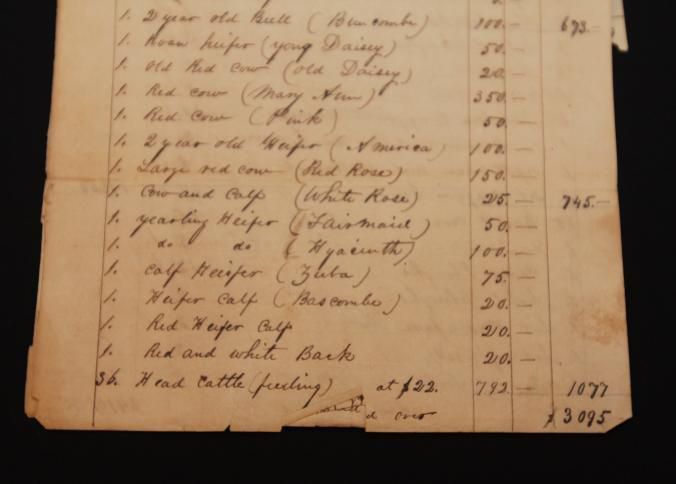 1. 2 year old Bull (Buncombe) 100. — 673 —
1. Roan heifer (yong Daisey) 50. —
1. Old Red Cow (old Daisey) 20. —
1. Red cow (Mary Ann) 350. —
1. Red Cow (Pink) 50. —
1. 2 year old Heifer (America) 100. —
1. Large red cow (Red Rose) 150. —
1. Cow and Calf (White Rose) 25. — 745. —
1. yearling Heifer (Fairmaid) 50. —
1. do do (Hyacinth) 100. —
1. calf Heifer (Zuba) 75. —
1. Heifer Calf (Bascombe) 20. —
1. Red Heifer Calf 20. —
1. Red and white Back 20. —
36. Head Cattle (feeding) at $22. 792. — 1077
d over $3095